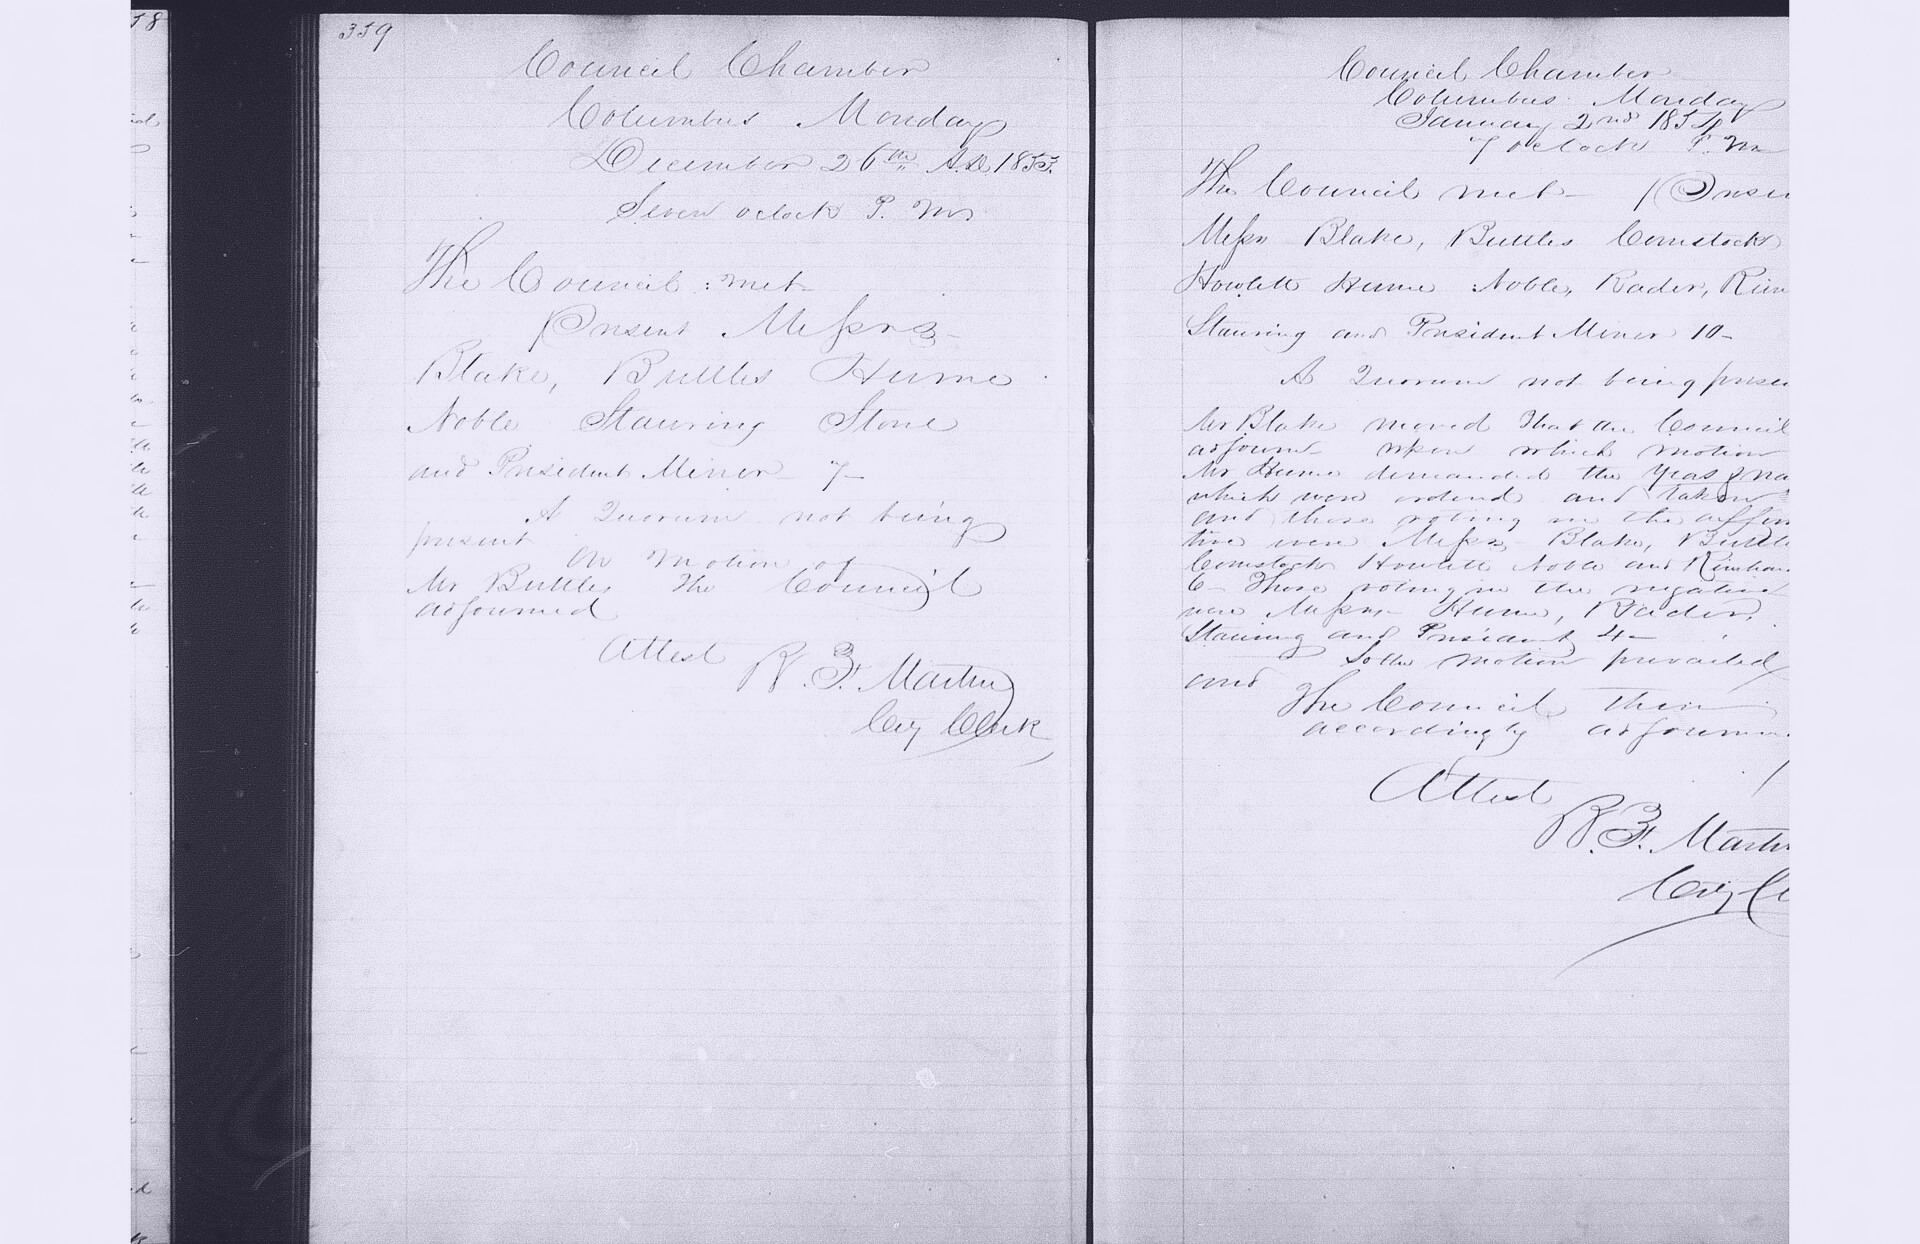 58
359
Council Chamber
Columbus Monday
December 26th A.D. 1853.
Seven oclock P. M.
The Council met
Present Messrs
Blake, Buttles Hume
Noble Stauring Stone
and President Miner 7-
A Quorum not being
present
On motion of
Mr Buttles The Council
adjourned
Attest B. F. Martin
City Clerk
Council Chamber
Columbus Monday
January 2nd 1854
7 oclock P. M
The Council met- Presen
Messrs Blake, Buttles Comstock
Howlett Hume Noble, Rader, Rim
Stauring and President Miner 10-
A Quorum not being prese
Mr Blake moved that the Council
adjourn upon which motion
Mr Hume demanded the yeas & na
which were ordered and taken
and those voting in the affirm
tive were Messrs Blake, Buttle
Comstock Howlett Noble and
6- Those voting in the negative
were Messrs Hume, Rader,
Stauring and President 4-
So the motion prevailed
and
The Council then
accordingly adjourne
Attest
B. F. Martin
City Cl